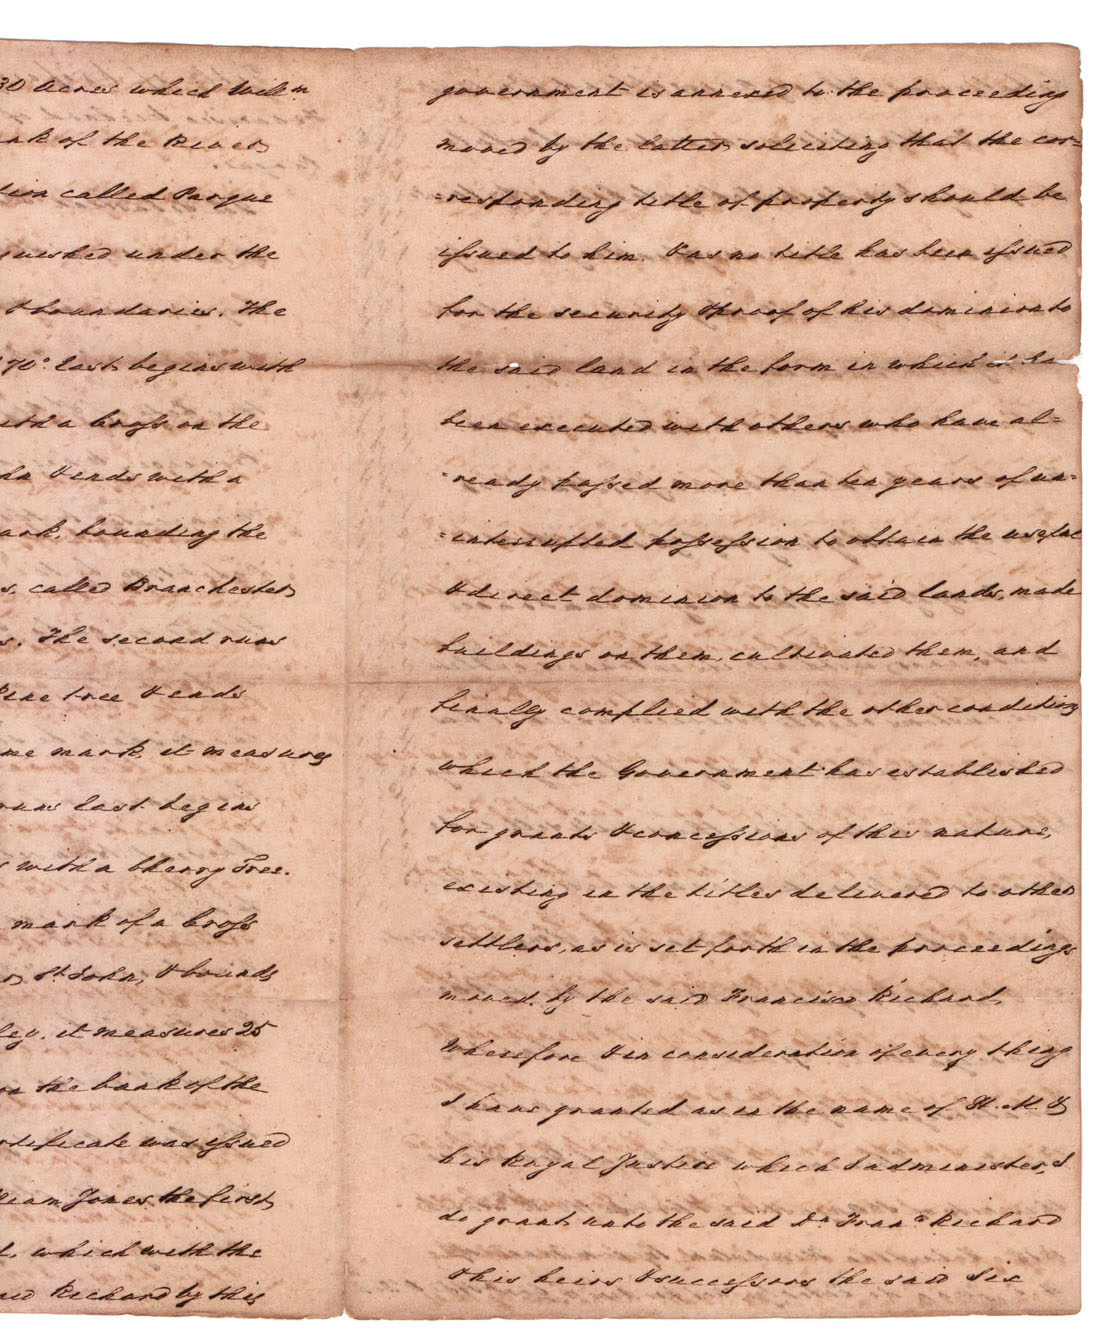 30 Acres which Will.m
ank of the River
tion called Parque
quished under the
& boundaries. The
70° East begins with
with a Cross on the
hn & ends with a
ark, bounding the
s, called Branchester
s. The second runs
Pine tree & ends
me mark, it measures
runs East begins
s with a Cherry Tree.
mark of a Cross
St. John, & bounds
ley. it measures 25
on the bank of the
rtificate was issued
liam Jones the first
t, which with the
Richard by this
government is annexed to the proceeding
moved by the latter soliciting that the cor=
=responding title of property should be
issued to him. & as no title has been issued
for the security & proof of his dominion to
the said land in the form in which it ha
been executed with others who have al=
=ready passed more than ten years of un=
=interrupted possession to obtain the useful
& direct dominion to the said lands, made
buildings on them, cultivated them, and
finally complied with the other conditions
which the Government has established
for grants & concessions of this nature,
existing in the titles delivered to other
settlers, as is set forth in the proceedings
moved by the said Francisco Richard,
Wherefore & in consideration of every thing
I have granted as in the name of H. M &
his Royal Justice which I administer, I
do grant unto the said Dn Franco Richard
& his heirs & successors the said Six